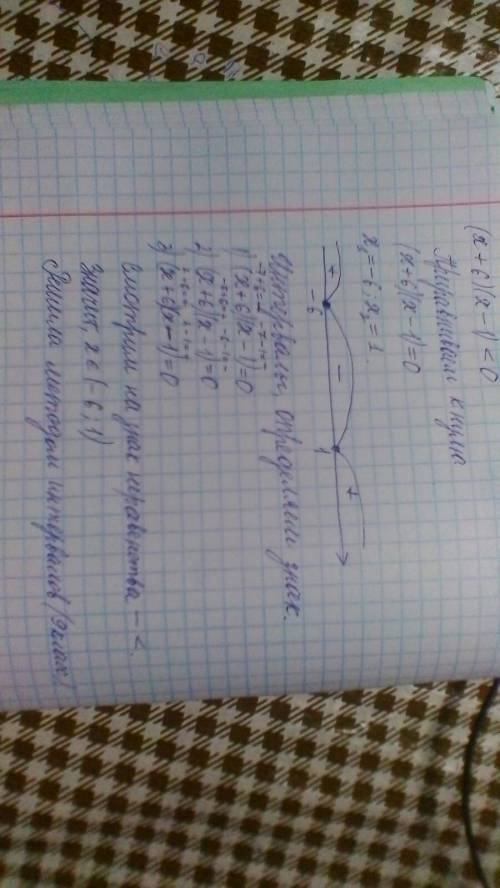 (x+6)(x-1)<0
Приравниваем к нулю
(x+6)(x-1)=0
x₁=-6; x₂=1
+ - +
-6 1
Интервалы, определяем знак.
1) (x+6)(x-1)=0
2) (x+6)(x-1)=0
3) (x+6)(x-1)=0
Смотрим на знак неравенства - <.
Значит, x∈(-6;1)
Решила методом интервалов (9 класс)